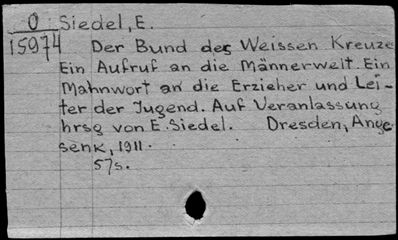 O Siedel, E.
15974 Der Bund des Weissen Kreuze
Ein Aufruf an die Männerwelt. Ein
Mahnwort an die Erzieher und Lei-
ter der Jugend. Auf Veranlassung
hrsg von E. Siedel. Dresden, Ange
senk, 1911.
57s.